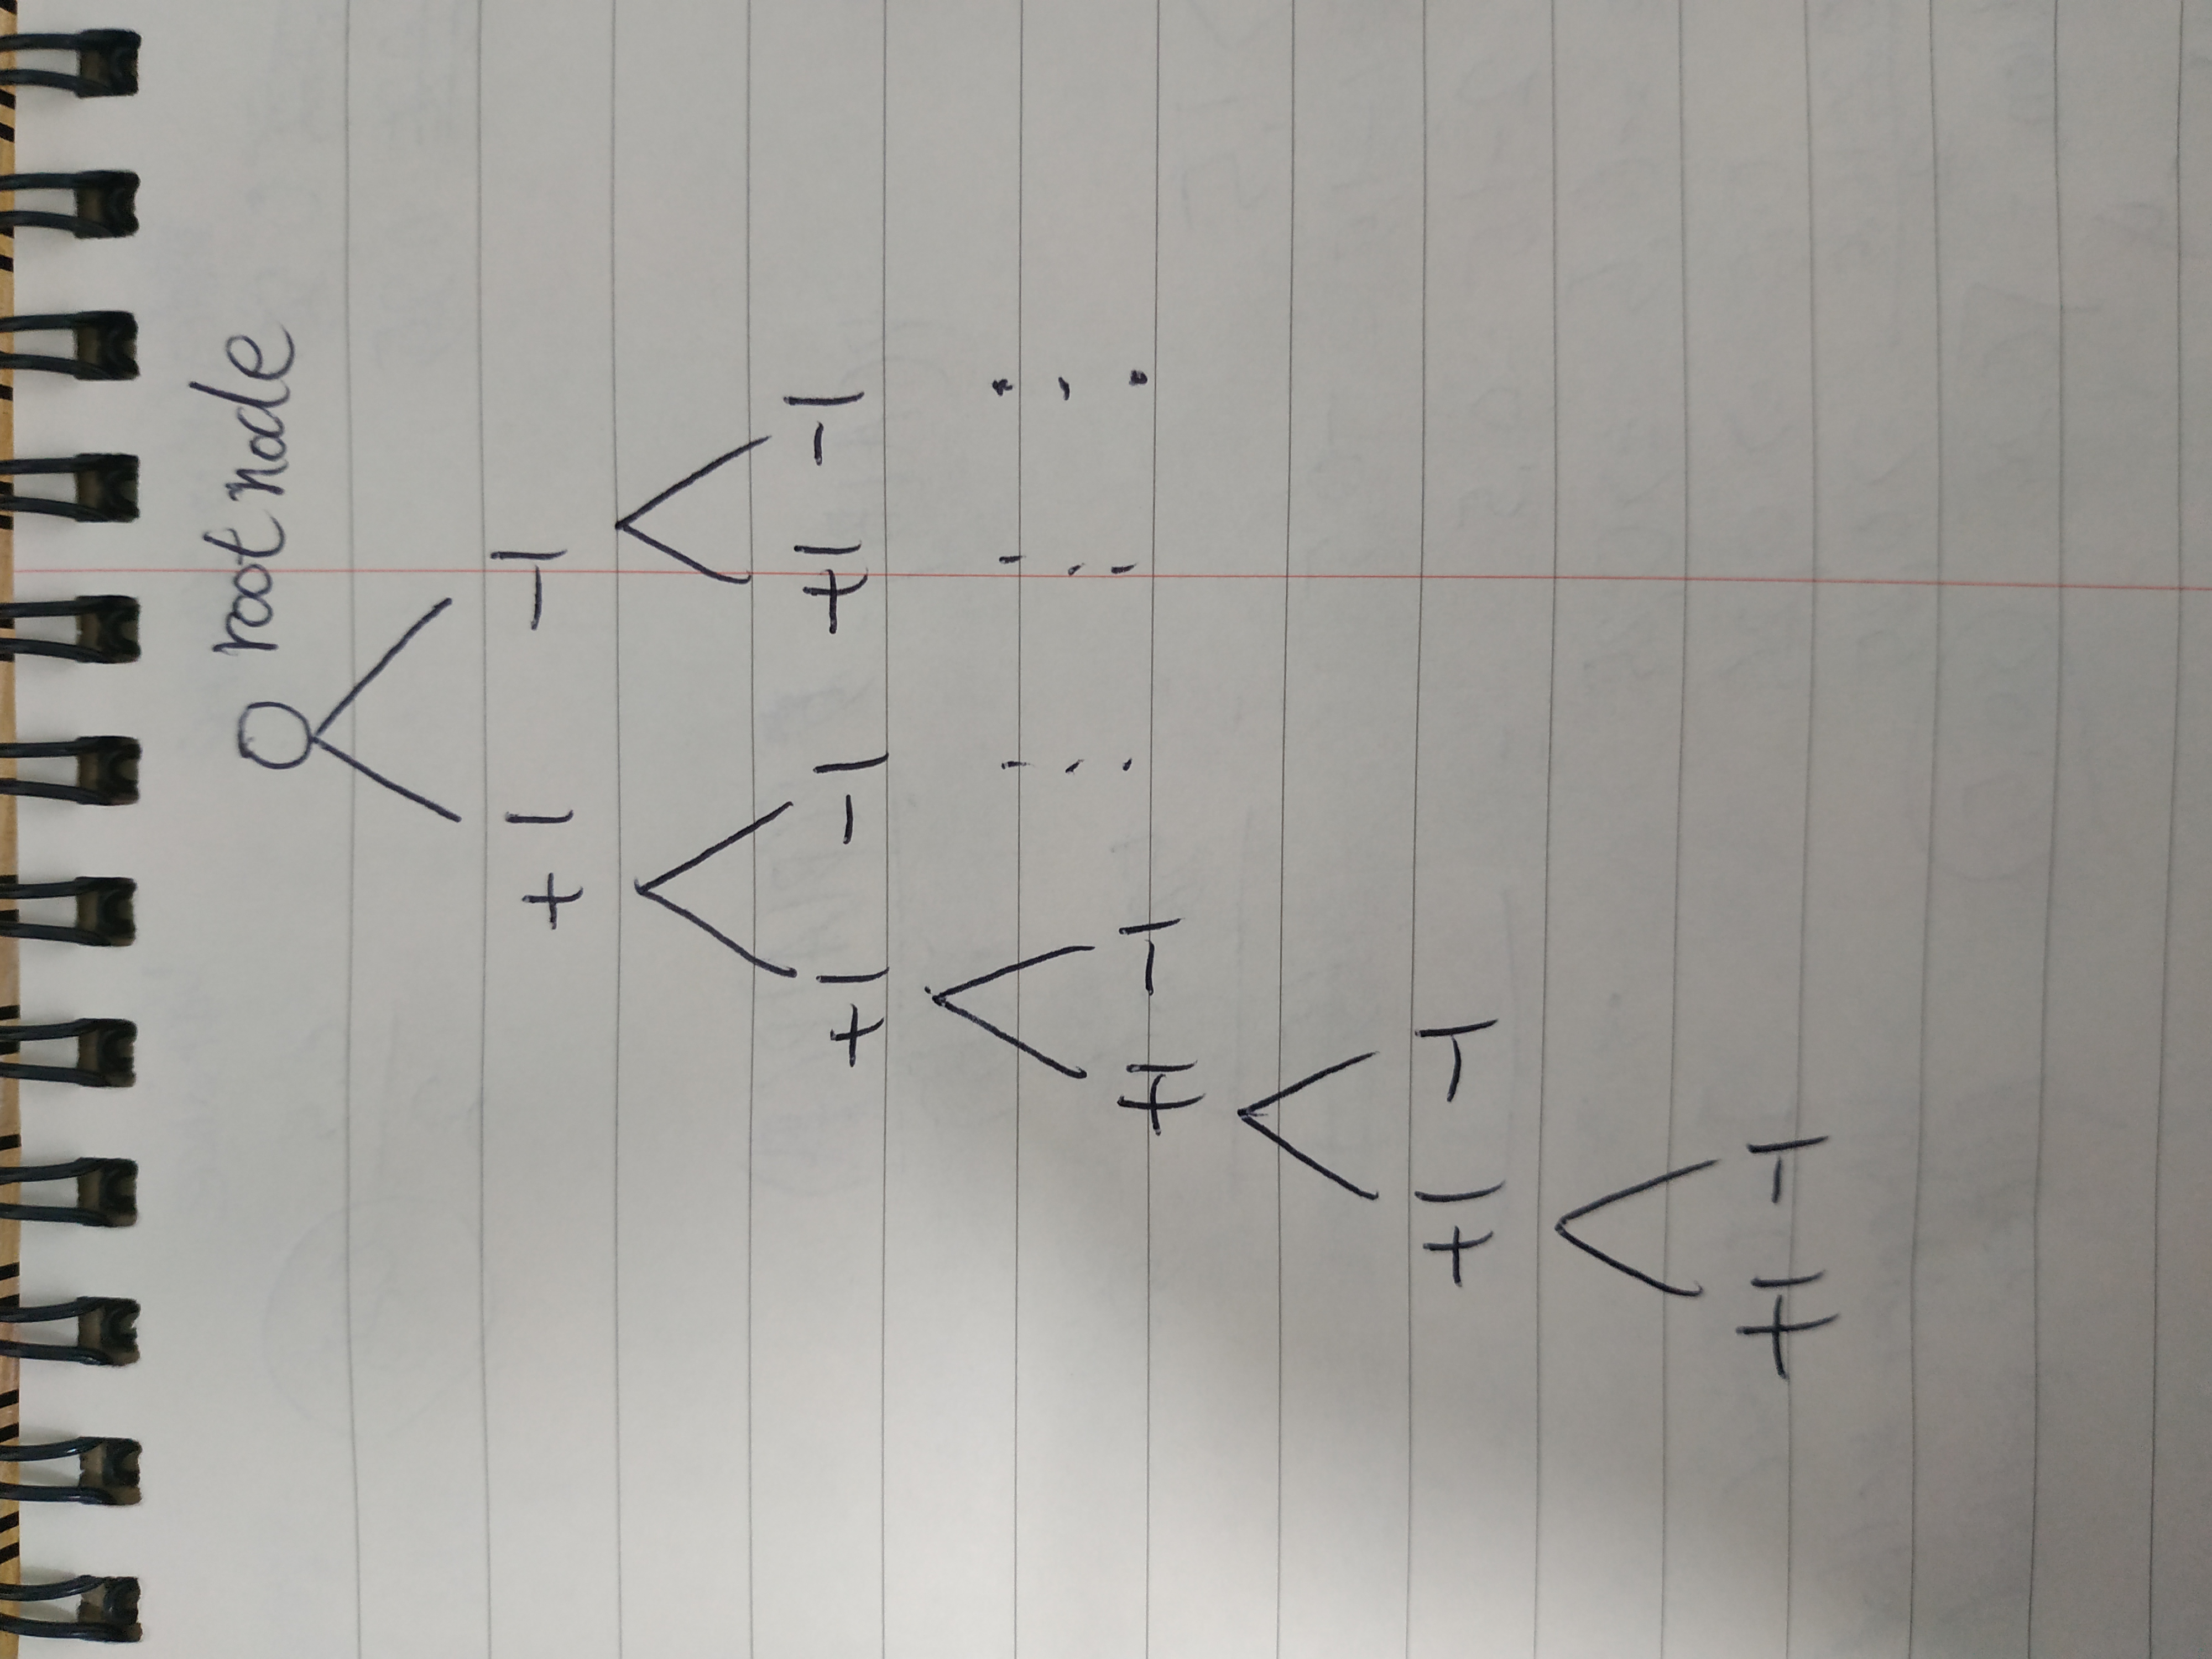 root node
+1 -1
+1 -1 +1 -1
+1 -1
+1 -1
+1 -1